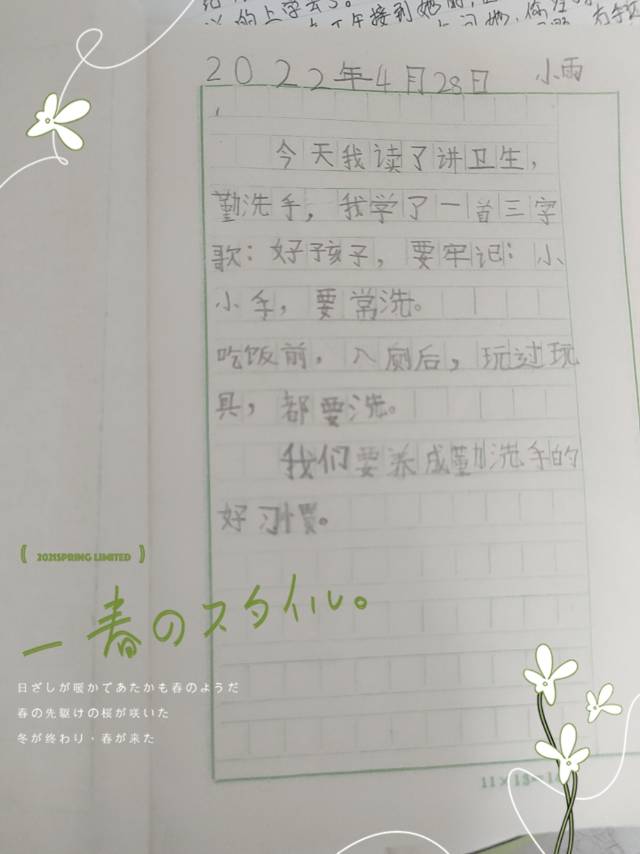 的上学去了。
2022年4月28日 小雨
今天我读了讲卫生，
勤洗手，我学了一首三字
歌：好孩子，要牢记：小
小手，要常洗。
吃饭前，入厕后，玩过玩
具，都要洗。
我们要养成勤洗手的
好习惯。
( 2021SPRING LIMITED )
一春のスタイル。
日ざしが暖かであたかも春のようだ
春の先駆けの桜が咲いた
冬が終わり・春が来た